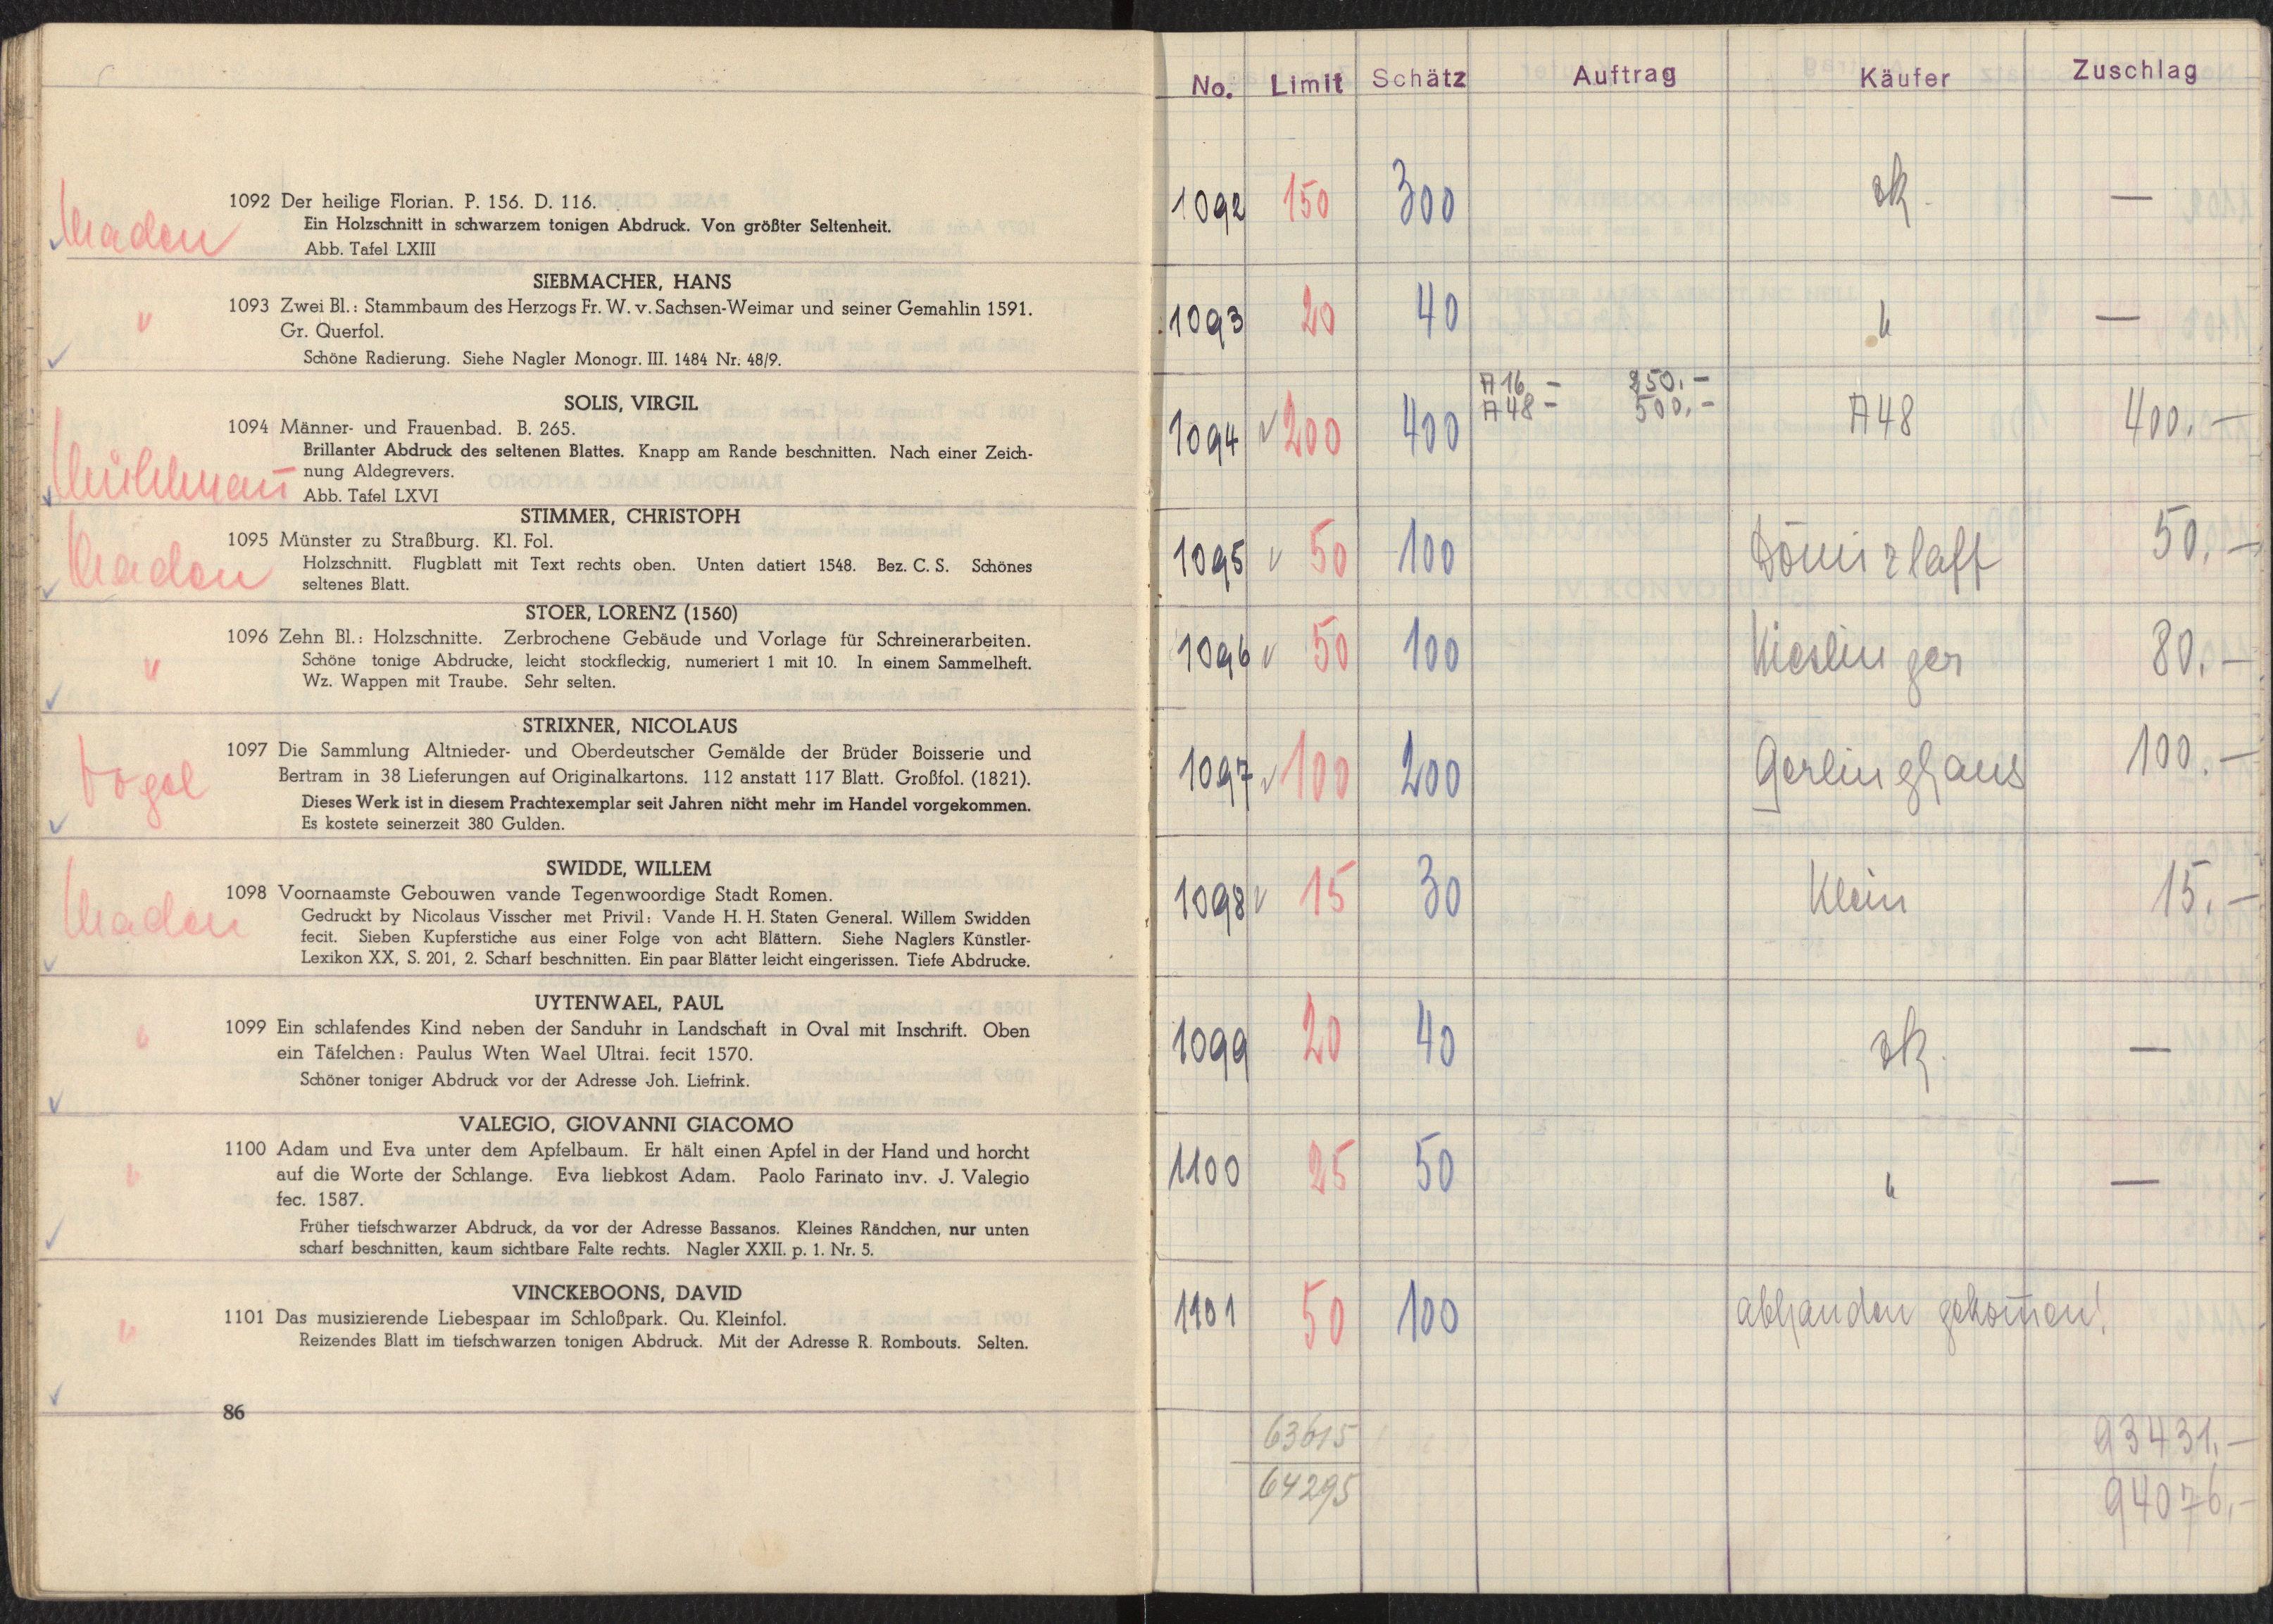 1092 Der heilige Florian. P. 156. D. 116.
Ein Holzschnitt in schwarzem tonigen Abdruck. Von größter Seltenheit.
Abb. Tafel LXIII
SIEBMACHER, HANS
1093 Zwei Bl.: Stammbaum des Herzogs Fr. W. v. Sachsen-Weimar und seiner Gemahlin 1591.
Gr. Querfol.
Schöne Radierung. Siehe Nagler Monogr. III. 1484 Nr. 48/9.
SOLIS, VIRGIL
1094 Männer- und Frauenbad. B. 265.
Brillanter Abdruck des seltenen Blattes. Knapp am Rande beschnitten. Nach einer Zeich-
nung Aldegrevers.
Abb. Tafel LXVI
STIMMER, CHRISTOPH
1095 Münster zu Straßburg. Kl. Fol.
Holzschnitt. Flugblatt mit Text rechts oben. Unten datiert 1548. Bez. C. S. Schönes
seltenes Blatt.
STOER, LORENZ (1560)
1096 Zehn Bl.: Holzschnitte. Zerbrochene Gebäude und Vorlage für Schreinerarbeiten.
Schöne tonige Abdrucke, leicht stockfleckig, numeriert 1 mit 10. In einem Sammelheft.
Wz. Wappen mit Traube. Sehr selten.
STRIXNER, NICOLAUS
Vogel
1097 Die Sammlung Altnieder- und Oberdeutscher Gemälde der Brüder Boisserie und
Bertram in 38 Lieferungen auf Originalkartons. 112 anstatt 117 Blatt. Großfol. (1821).
Dieses Werk ist in diesem Prachtexemplar seit Jahren nicht mehr im Handel vorgekommen.
Es kostete seinerzeit 380 Gulden.
SWIDDE, WILLEM
1098 Voornaamste Gebouwen vande Tegenwoordige Stadt Romen.
Gedruckt by Nicolaus Visscher met Privil: Vande H. H. Staten General. Willem Swidden
fecit. Sieben Kupferstiche aus einer Folge von acht Blättern. Siehe Naglers Künstler-
Lexikon XX, S. 201, 2. Scharf beschnitten. Ein paar Blätter leicht eingerissen. Tiefe Abdrucke.
UYTENWAEL, PAUL
1099 Ein schlafendes Kind neben der Sanduhr in Landschaft in Oval mit Inschrift. Oben
ein Täfelchen: Paulus Wten Wael Ultrai. fecit 1570.
Schöner toniger Abdruck vor der Adresse Joh. Liefrink.
VALEGIO, GIOVANNI GIACOMO
1100 Adam und Eva unter dem Apfelbaum. Er hält einen Apfel in der Hand und horcht
auf die Worte der Schlange. Eva liebkost Adam. Paolo Farinato inv. J. Valegio
fec. 1587.
Früher tiefschwarzer Abdruck, da vor der Adresse Bassanos. Kleines Rändchen, nur unten
scharf beschnitten, kaum sichtbare Falte rechts. Nagler XXII. p. 1. Nr. 5.
VINCKEBOONS, DAVID
1101 Das musizierende Liebespaar im Schloßpark. Qu. Kleinfol.
Reizendes Blatt im tiefschwarzen tonigen Abdruck. Mit der Adresse R. Rombouts. Selten.
86
No. Limit Schätz Auftrag Käufer Zuschlag
1092 150 300 —
1093 20 40 " —
A 16 – 250.–
A 48 – 500.–
1094 200 400 A 48 400.–
1095 50 100 Dömizlaff 50.–
1096 50 100 Kieslinger 80.–
1097 100 200 Gerlinghaus 100.–
1098 15 30 Klein 15.–
1099 20 40 —
1100 25 50 " —
1101 50 100 abhanden gekom̄en!
63615 93431.–
64295 94076.–